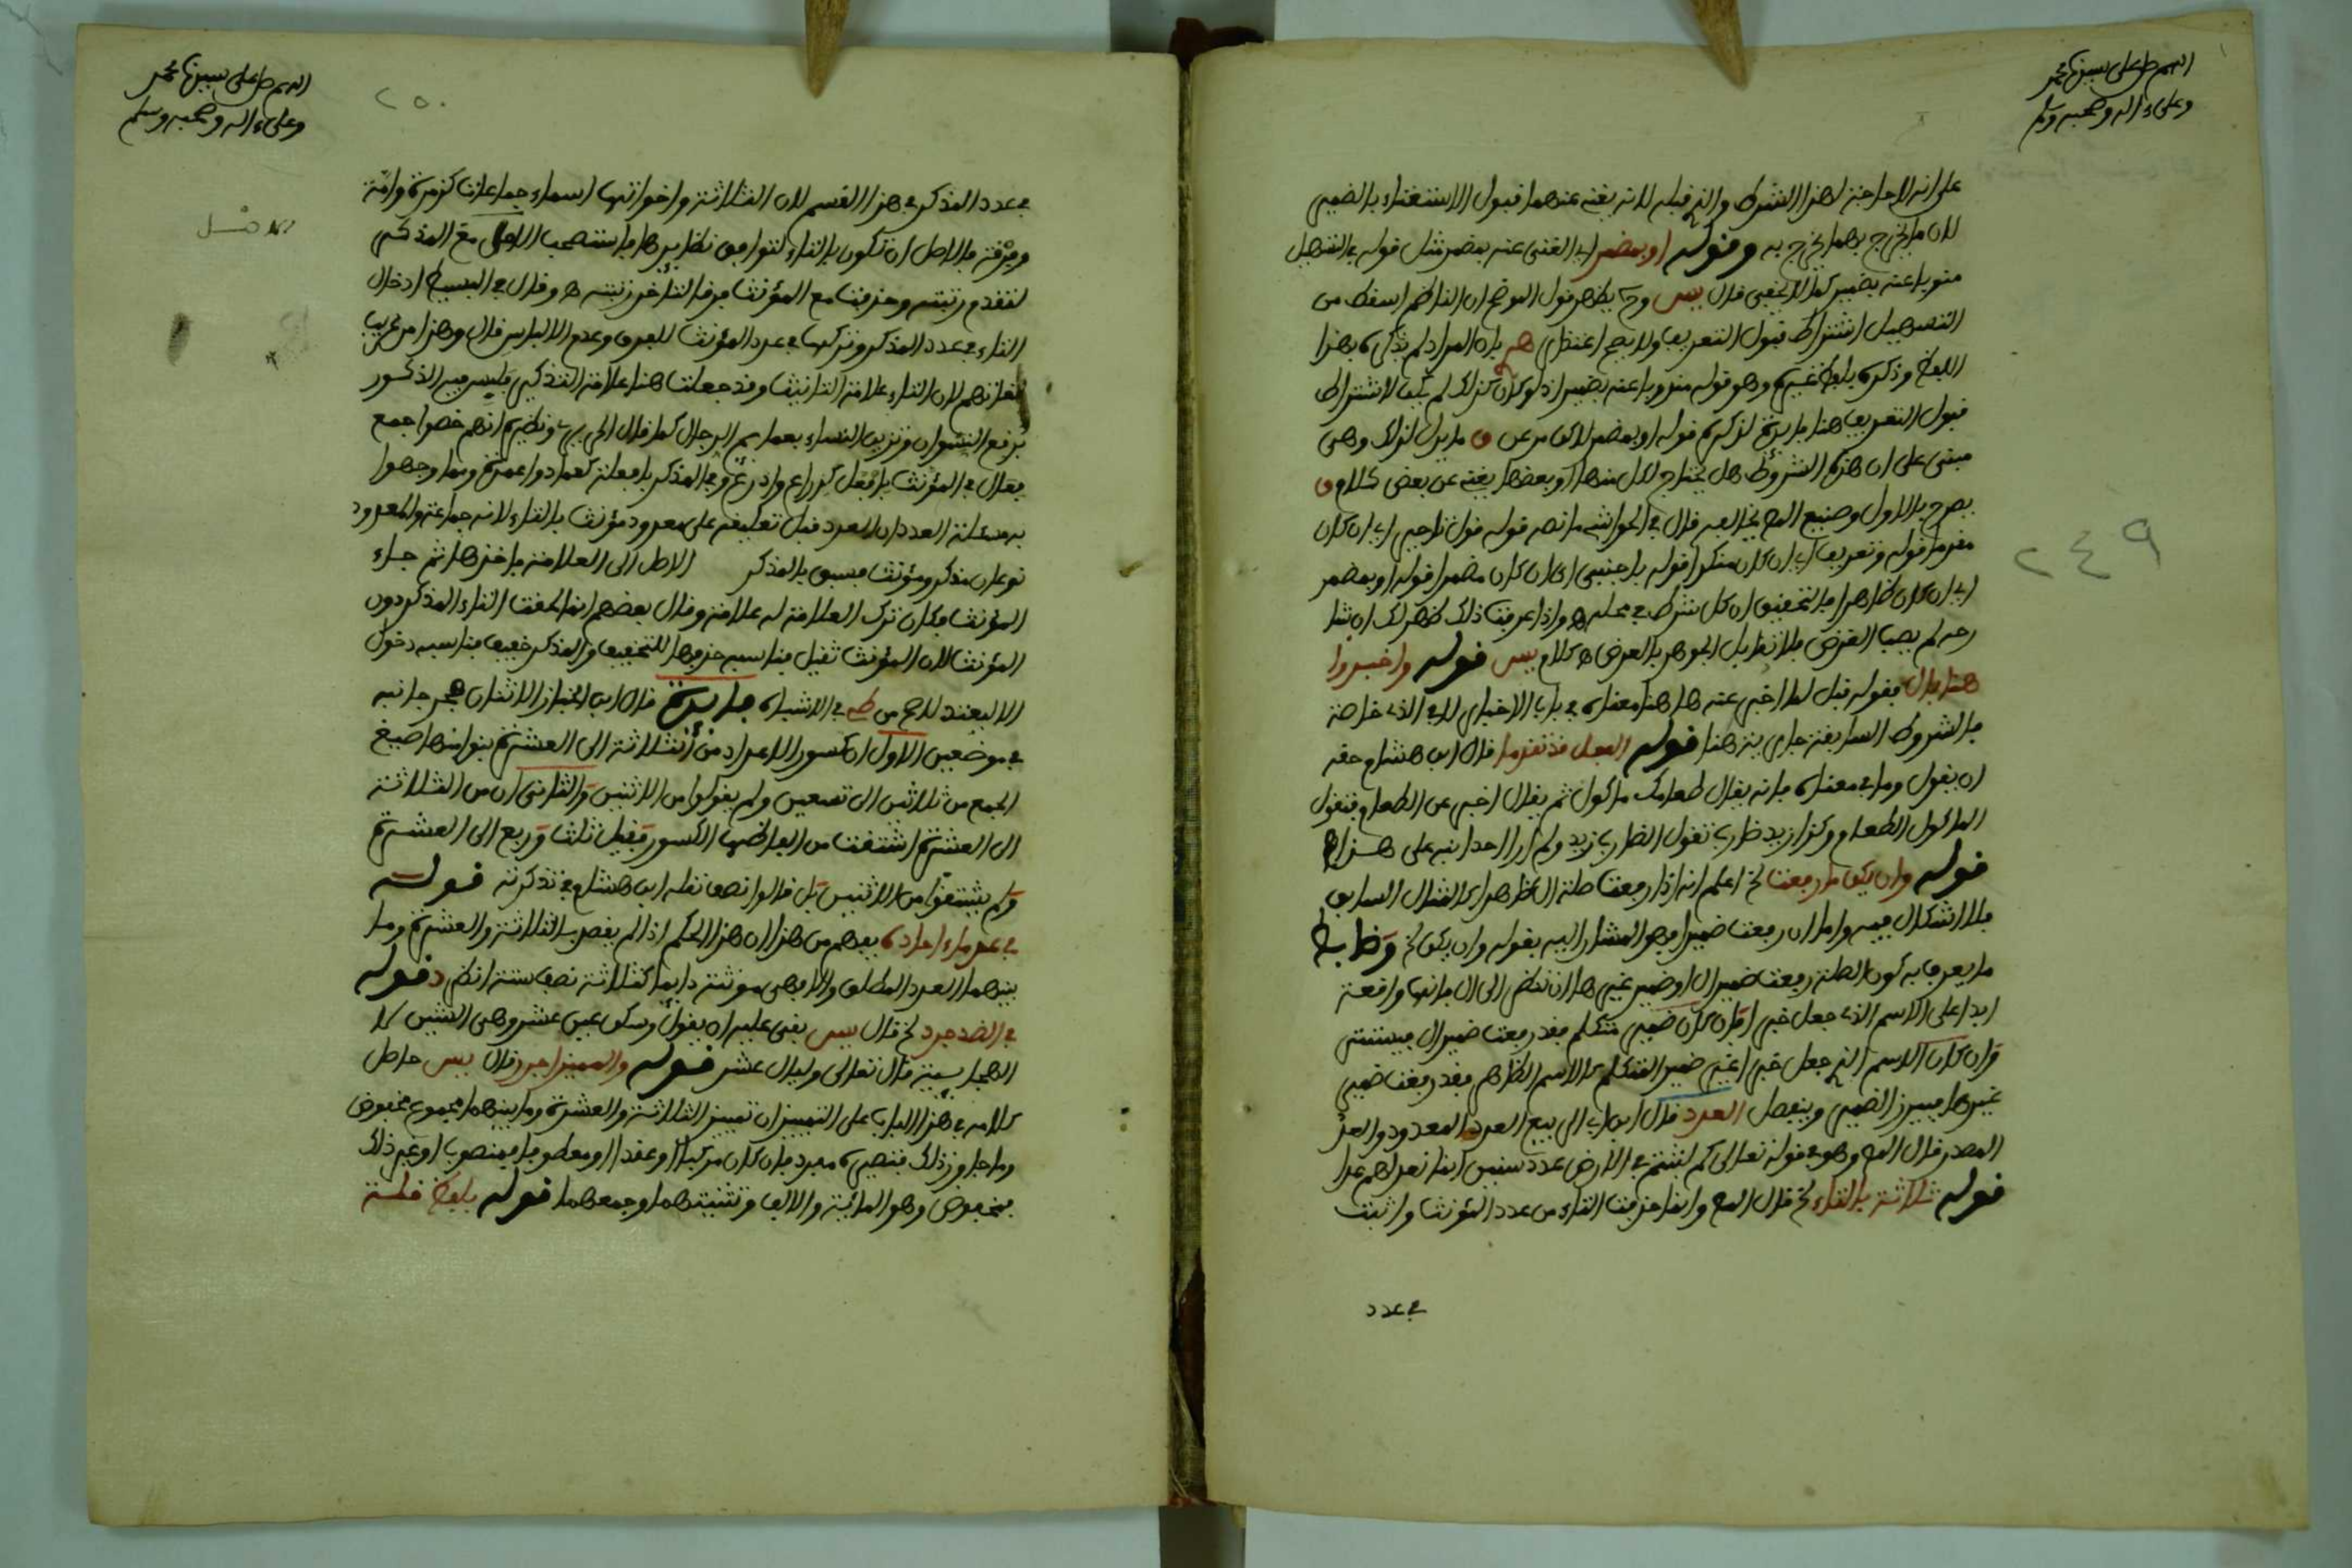 اللهم صل على سيدنا محمد
وعلى ءاله وصحبه وسلم
٢٤٩
على انه لا حاجة لهذا الشرط والذي قبله لانه يغني عنهما قبول الاستغناء بالضمير
لان ما يخرج بهما يخرج به وقوله او بمضمر اي الغنى عنه بمضمر مثل قوله في التسهيل
منوبا عنه بضمير كما لا يخفى قال يس وح يظهر قول الموضح ان الناظم اسقط من
التسهيل اشتراط قبول التعريف ولا يصح اعتذار بان المراد لم يذكره بهذا
اللفظ وذكره بلفظ غيره وهو قوله منوبا عنه بضمير اذ لو كان كذلك لم يكن لاشتراط
قبول التعريف هنا فايدة لذكره قوله او بمضمر لاكن مر عن ق ما يدل لذلك وهي
مبني على ان هذه الشروط هل يحتاج لكل منها او بعضها يغني عن بعض كلام ق
يصرح بالاول وصنيع المص يخالفه قال في الحواشي ما نصه قوله قول تاخير اي ان كان
مقدما قوله وتعريف اي ان كان منكرا قوله باجنبي اي ان كان مضمرا قوله او بمضمر
اي ان كان ظاهرا فالتحقيق ان كل شرط في محله ه واذا عرفت ذلك ظهر لك ان شا
رحه لم يصب الغرض فلا تقابل الجوهر بالعرض ه كلام يس قوله واخبروا
هنا بال فقوله قبل لما اخبر عنه ها هنا معناه في باب الاخبار لا في الذي خاصة
فالشروط السابقة جارية هنا قوله الفعل قد تقدما قال ابن هشام حقه
ان يقول وما في معناه فانه يقال طعامك ماكول ثم يقال اخبر عن الطعام فتقول
الماكول الطعام وكذا زيد ضارب تقول الضارب زيد ولم ار احدا نبه على هذا ه
قوله وان يكن ما رفعت الخ اعلم انه اذا رفعت صلة ال ظاهرا كالمثال السابق
فلا اشكال فيه واما ان رفعت ضميرا فهو المشار اليه بقوله وان يكن الخ وضابط
ما يعرف به كون الصلة رفعت ضمير ال او ضمير غيرها ان تنظر الى ال فانها واقعة
ابدا على الاسم الذي جعل خبرا فان كان ضمير متكلم فقد رفعت ضمير ال فيستتر
وان كان الاسم الذي جعل خبرا غير ضمير المتكلم كالاسم الظاهر فقد رفعت ضمير
غيرها فيبرز الضمير وينفصل العدد قال ابن اياز في بيع العدد المعدود والعد
المصدر قال المص وهو في قوله تعالى كم لبثتم في الارض عدد سنين انما نعد لهم عدا
قوله ثلاثة بالتاء الخ قال المص وانما حذفت التاء من عدد المؤنث واثبتت
في عدد
اللهم صل على سيدنا محمد
وعلى ءاله وصحبه وسلم
٢٥٠
في عدد المذكر في هذا القسم لان الثلاثة واخواتها اسماء جماعات كزمرة وامة
وفرقة فالاصل ان تكون بالتاء لتوافق نظايرها فاستصحب الاصل مع المذكر
لتقدم رتبته وحذفت مع المؤنث فرقا لتاخر رتبته ه وقال في البسيط ادخال
التاء في عدد المذكر وتركها في عدد المؤنث للفرق وعدم الالباس قال وهذا من غريب
لغاتهم لان التاء علامة التانيث وقد جعلت هنا علامة التذكير فليس من الذكور
برقع النسوان وتزين النساء بعمايم الرجال كما قال الحريري ونظيره انهم خصوا جمع
فعال في المؤنث بافعل كذراع واذرع وفي المذكر بافعلة كعماد واعمدة ومما وجهوا
به مسئلة العدد ان العدد قبل تعليقه على معدود مؤنث بالتاء لانه جماعة والمعدود
نوعان مذكر ومؤنث فسبق بالمذكر الاصل الى العلامة فاخذها ثم جاء
المؤنث فكان ترك العلامة له علامة وقال بعضهم انما لحقت التاء المذكر دون
المؤنث لان المؤنث ثقيل فناسبه حذفها للتخفيف والمذكر خفيف فناسبه دخول
الا ليعتدل ح من ط في الاشباه فايدة قال ابن الخباز الاثنان هجر جانبه
في موضعين الاول ان كسور الاعداد من الثلاثة الى العشرة بنوا منها صيغ
الجمع من ثلاثين الى تسعين ولم يقولوا من الاثنين والثاني ان من الثلاثة
الى العشرة اشتقت من الفاظها الكسور فقيل ثلث وربع الى العشرة
ولم يشتقوا من الاثنين بل قالوا نصف نقله ابن هشام في تذكرته قوله
في عد ما احاده يفهم من هذا ان هذا الحكم اذا لم يقصد بالثلاثة والعشرة وما
بينهما العدد المطلق والا فهي مونثة دايما كثلاثة نصف ستة انظر د قوله
في الضد جرد الخ قال يس يفي عليه ان يقول وسكن عين عشر وهي الشين كلا
الحجازية قال تعالى وليال عشر قوله والمميز اجرر قال يس حاصل
كلامه في هذا الباب على التمييز ان تمييز الثلاثة والعشرة وما بينهما مجموع مخفوض
وما جاوز ذلك فتمييزه مفرد فان كان مركبا او عقدا او معطوفا فمنصوب او غير ذلك
فمخفوض وهو المائة والالف وتثنيتهما وجمعهما قوله بلفظ قلة